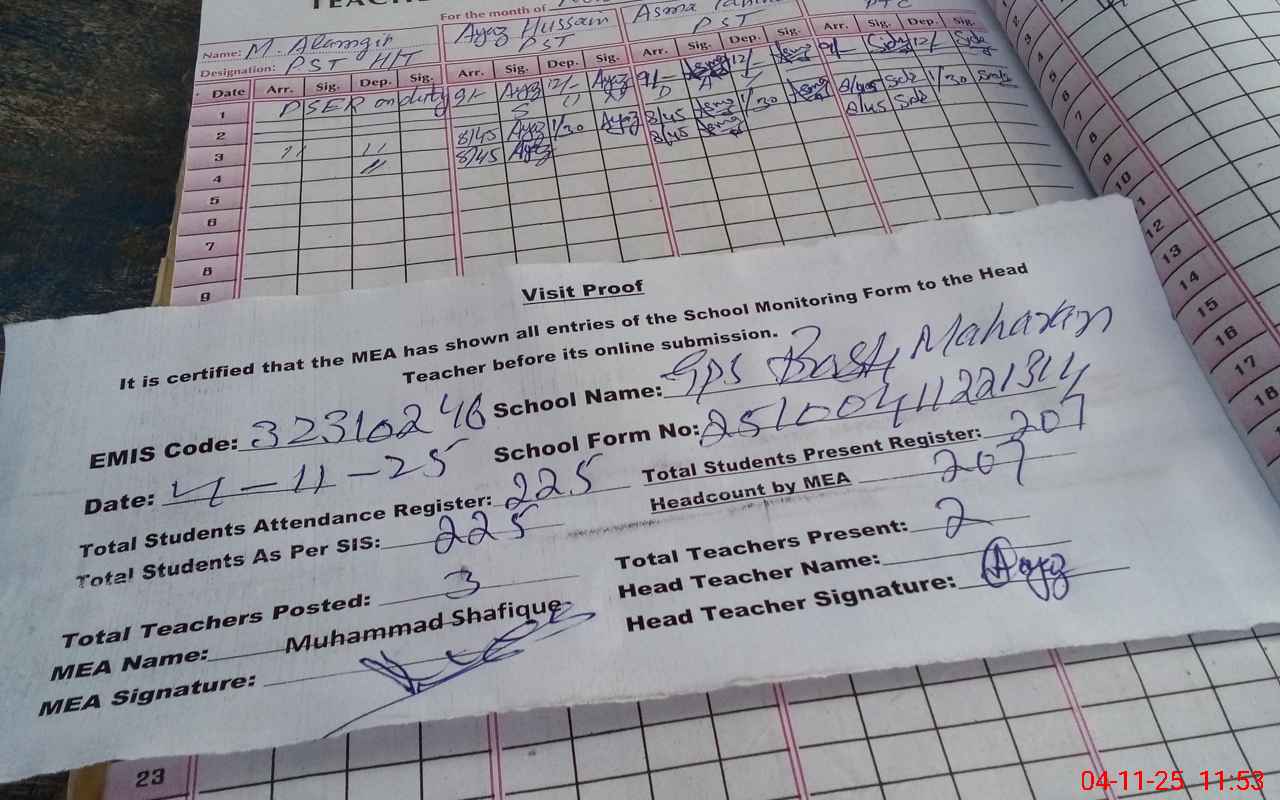 TEACHE
For the month of
Name: M. Alamgir
Ayaz Hussain
Asma
Designation: PST H/T
PST
PST
Date Arr. Sig. Dep. Sig. Arr. Sig. Dep. Sig. Arr. Sig. Dep. Sig. Arr. Sig. Dep. Sig.
1 PSER on duty 9/- Ayaz 12/- Ayaz 9/- Asma 12/- Asma 9/- 12/-
2 8/45 Ayaz 1/30 Ayaz 8/45 Asma 1/30 Asma 8/45 1/30
3 " " 8/45 Ayaz 8/45 Asma 8/45
4
5
6
7
8
9
Visit Proof
It is certified that the MEA has shown all entries of the School Monitoring Form to the Head
Teacher before its online submission.
EMIS Code: 32310246 School Name: GPS Basti Maharan
Date: 4-11-25 School Form No: 25100411221314
Total Students Attendance Register: 225 Total Students Present Register: 207
Total Students As Per SIS: 225 Headcount by MEA 207
Total Teachers Posted: 3 Total Teachers Present: 2
MEA Name: Muhammad Shafique Head Teacher Name:
MEA Signature: Head Teacher Signature: Ayaz
23
3
4
5
6
7
8
9
10
1
12
13
14
15
16
17
18
04-11-25 11:53